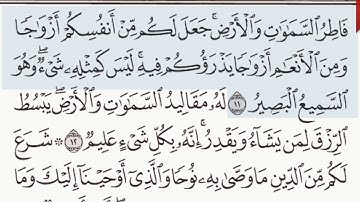 فَاطِرُ ٱلسَّمَٰوَٰتِ وَٱلْأَرْضِۚ جَعَلَ لَكُم مِّنْ أَنفُسِكُمْ أَزْوَٰجًا
وَمِنَ ٱلْأَنْعَٰمِ أَزْوَٰجًا يَذْرَؤُكُمْ فِيهِۚ لَيْسَ كَمِثْلِهِۦ شَىْءٌۖ وَهُوَ
ٱلسَّمِيعُ ٱلْبَصِيرُ ١١ لَهُۥ مَقَالِيدُ ٱلسَّمَٰوَٰتِ وَٱلْأَرْضِۖ يَبْسُطُ
ٱلرِّزْقَ لِمَن يَشَآءُ وَيَقْدِرُۚ إِنَّهُۥ بِكُلِّ شَىْءٍ عَلِيمٌ ١٢ ۞ شَرَعَ
لَكُم مِّنَ ٱلدِّينِ مَا وَصَّىٰ بِهِۦ نُوحًا وَٱلَّذِىٓ أَوْحَيْنَآ إِلَيْكَ وَمَا